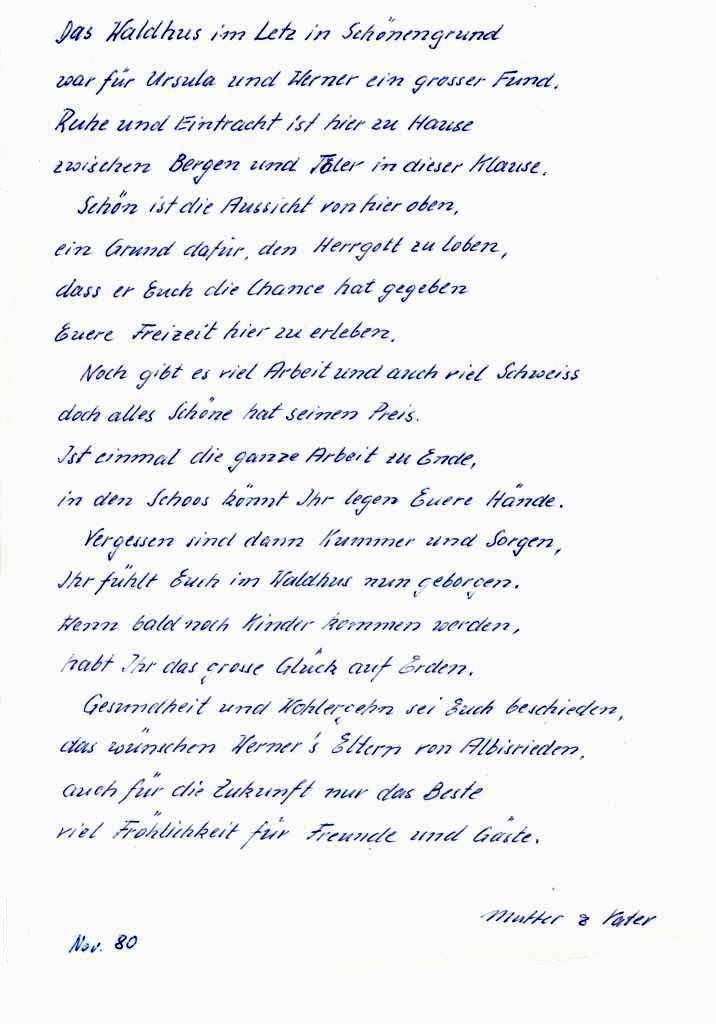 Das Waldhus im Letz in Schönengrund
war für Ursula und Werner ein grosser Fund.
Ruhe und Eintracht ist hier zu Hause
zwischen Bergen und Täler in dieser Klause.
Schön ist die Aussicht von hier oben,
ein Grund dafür, den Herrgott zu loben,
dass er Euch die Chance hat gegeben
Euere Freizeit hier zu erleben.
Noch gibt es viel Arbeit und auch viel Schweiss
doch alles Schöne hat seinen Preis.
Ist einmal die ganze Arbeit zu Ende,
in den Schoos könnt Ihr legen Euere Hände.
Vergessen sind dann Kummer und Sorgen,
Ihr fühlt Euch im Waldhus nun geborgen.
Wenn bald noch Kinder kommen werden,
habt Ihr das grosse Glück auf Erden.
Gesundheit und Wohlergehn sei Euch beschieden,
das wünschen Werner's Eltern von Albisrieden,
auch für die Zukunft nur das Beste
viel Fröhlichkeit für Freunde und Gäste.
Mutter & Vater
Nov. 80